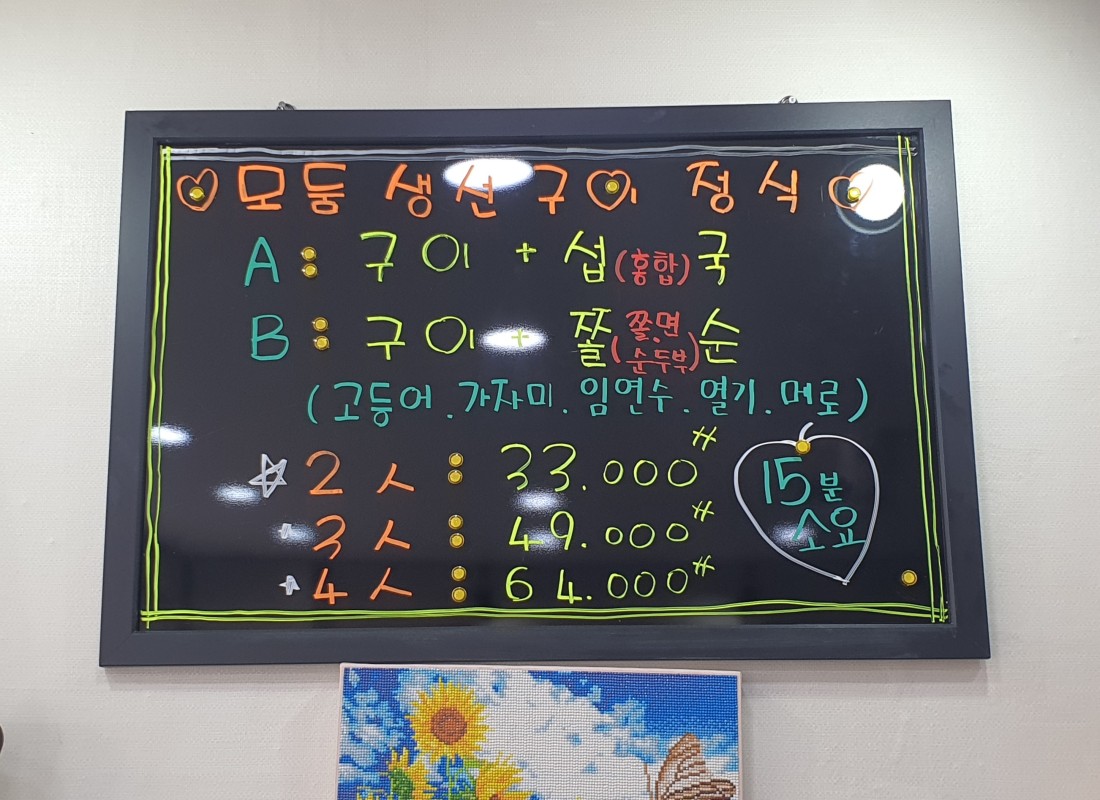 ♡ 모둠 생선 구이 정식 ♡
A : 구이 + 섭(홍합)국
B : 구이 + 쫄(쫄면.순두부)순
(고등어.가자미.임연수.열기.메로)
☆ 2人 : 33.000#
☆ 3人 : 49.000#
☆ 4人 : 64.000#
15분
소요